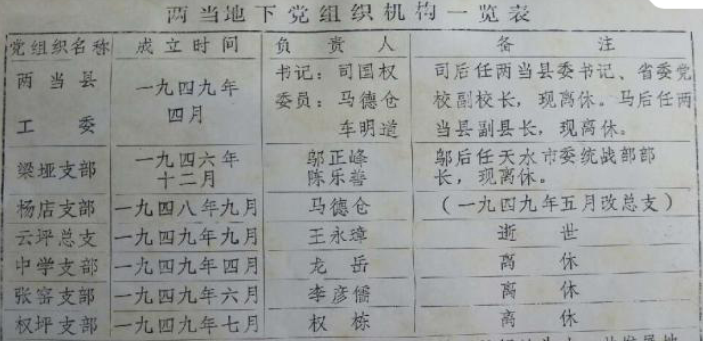 两当地下党组织机构一览表
党组织名称 成立时间 负责人 备注
两当县工委 一九四九年四月 书记：司国权 委员：马德仓 车明道 司后任两当县委书记、省委党校副校长，现离休。马后任两当县副县长，现离休。
梁垭支部 一九四六年十二月 邬正峰 陈乐善 邬后任天水市委统战部部长，现离休。
杨店支部 一九四八年九月 马德仓 （一九四九年五月改总支）
云坪总支 一九四九年九月 王永璋 逝世
中学支部 一九四九年四月 龙岳 离休
张窑支部 一九四九年六月 李彦儒 离休
权坪支部 一九四九年七月 权栋 离休